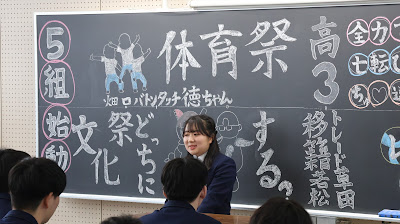 5組始動
体育祭
高3
全力で
七転び
ちゅ
畑口バトンタッチ徳ちゃん
文化祭どっちにする。
トレード草田
移籍若松